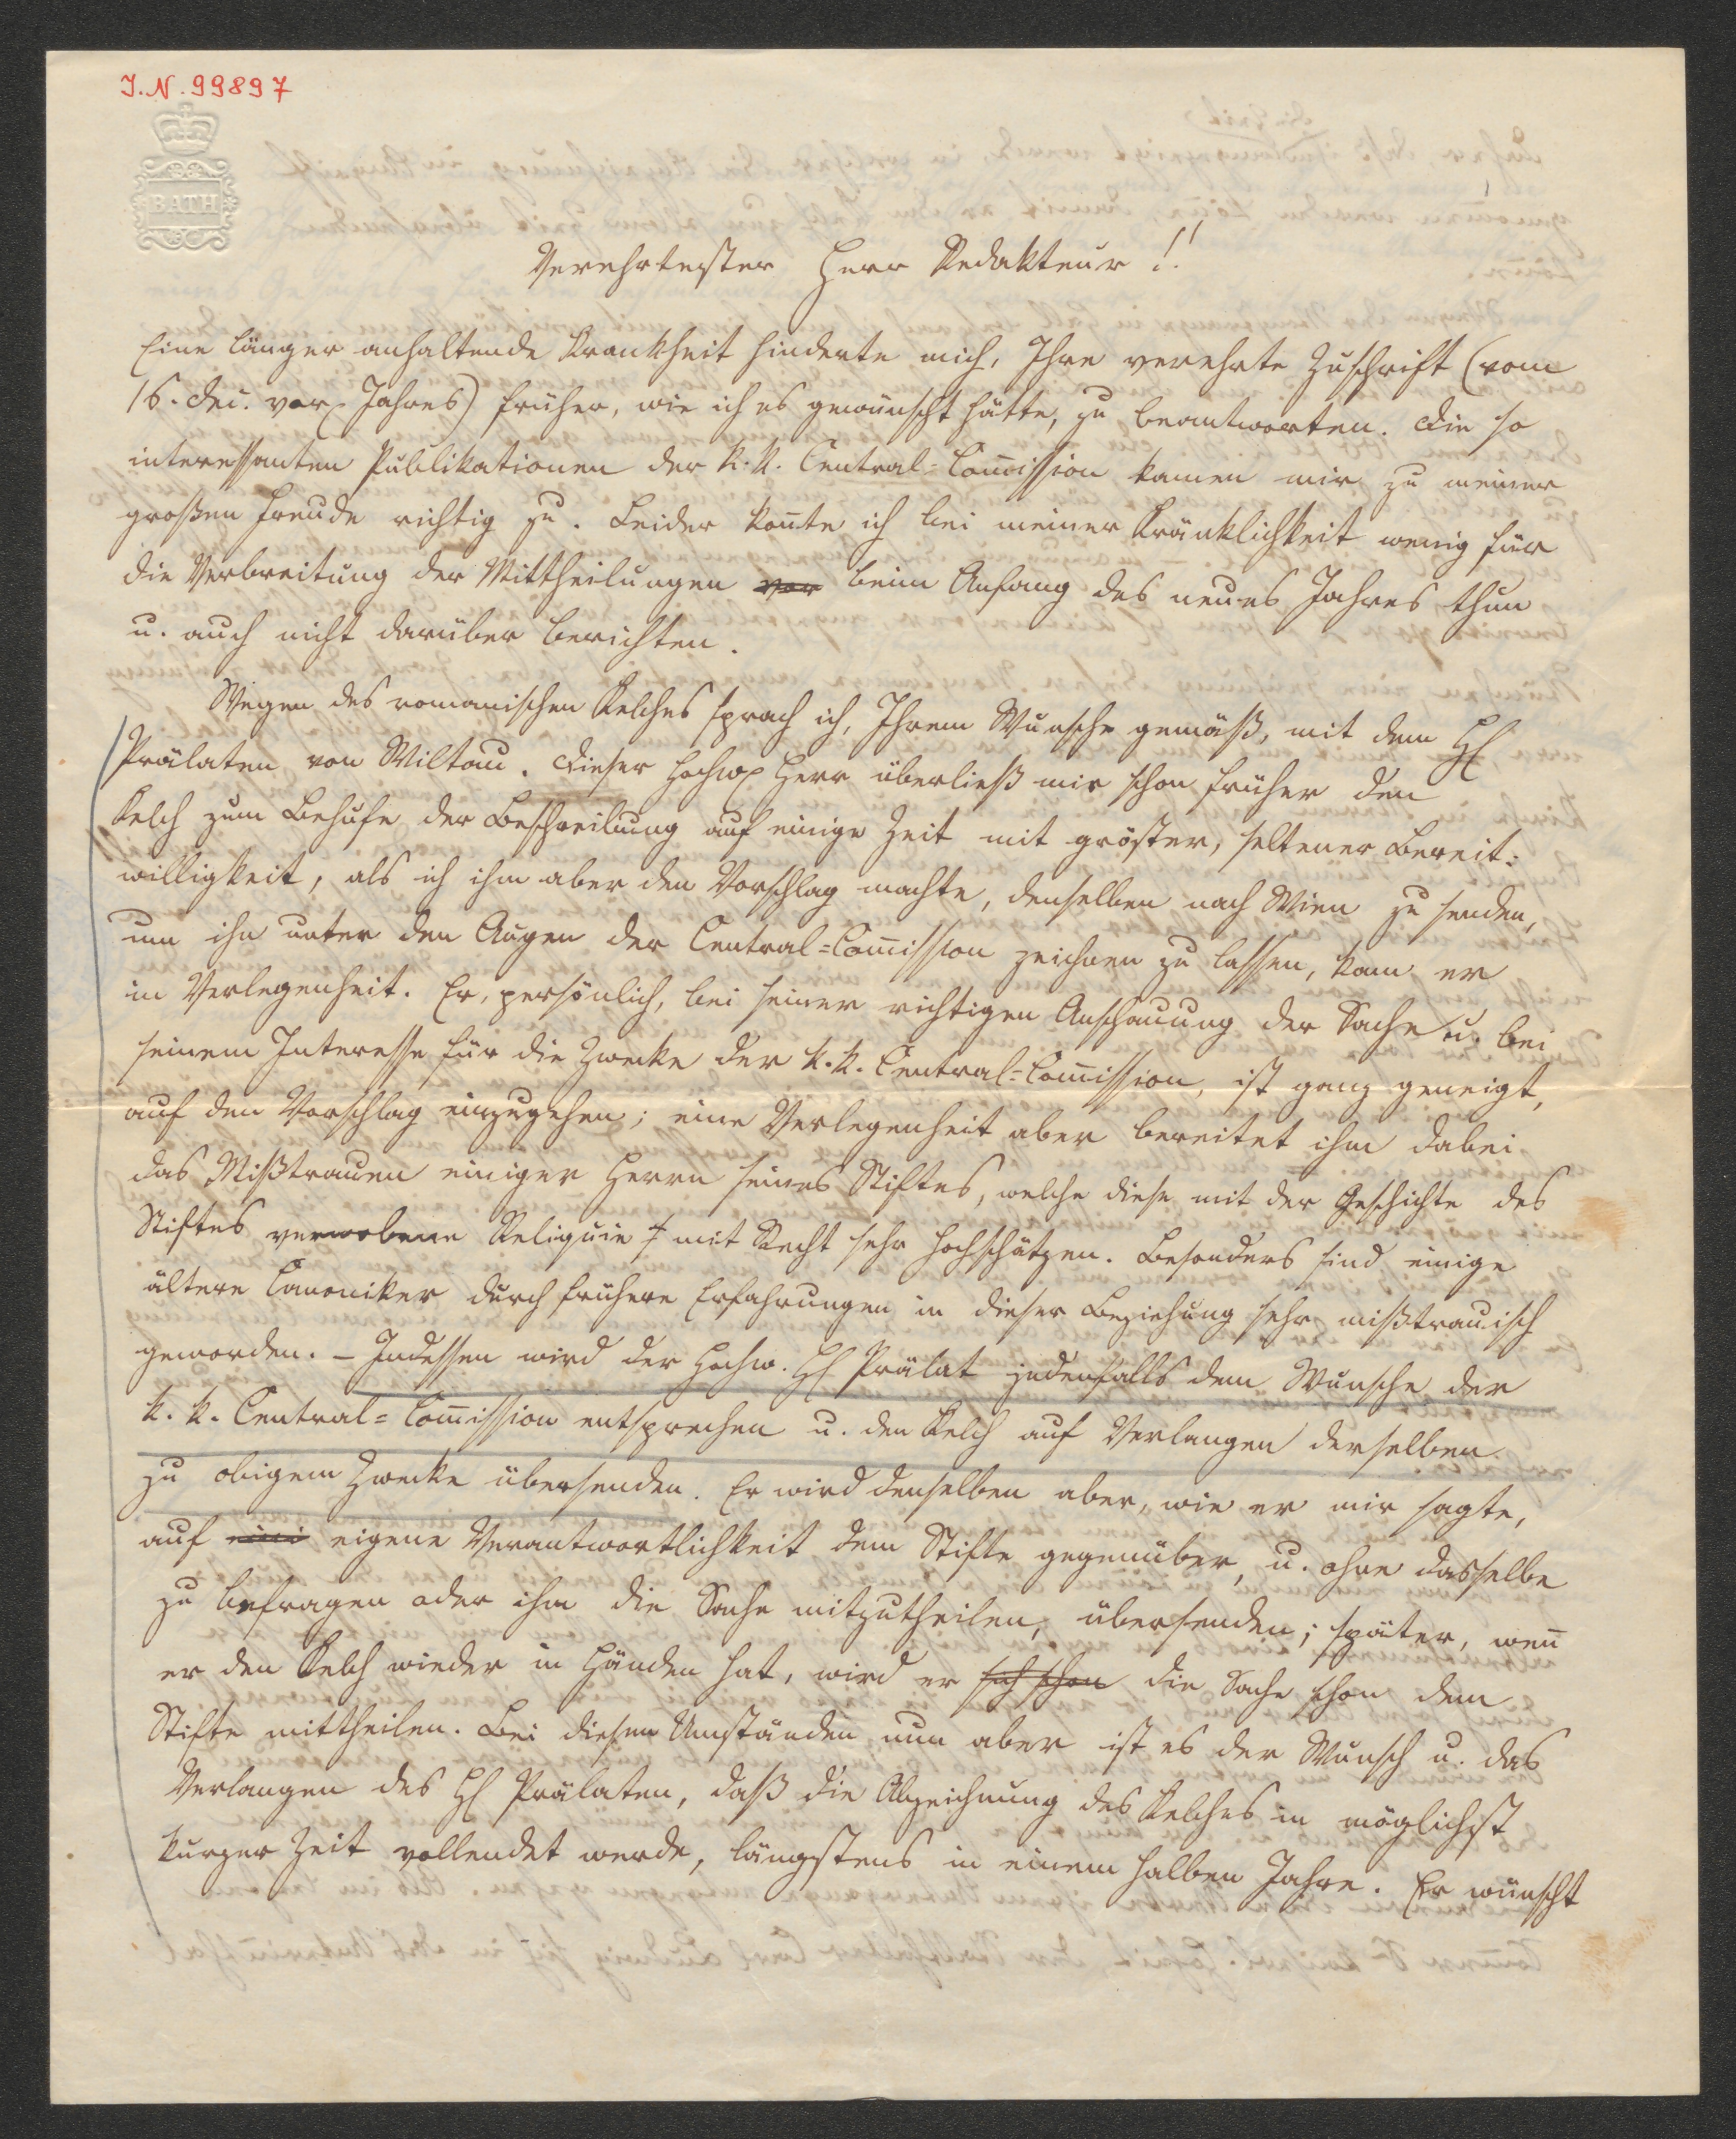 J.N. 99897
BATH
Verehrtester Herr Redakteur!!
Eine länger anhaltende Krankheit hinderte mich, Ihre verehrte Zuschrift (vom
16. Dec. vor. Jahres) früher, wie ich es gewünscht hätte, zu beantworten. Die so
interessanten Publikationen der k. k. Central=Com̅ission kamen mir zu meiner
großen Freude richtig zu. Leider kon̅te ich bei meiner Kränklichkeit wenig für
die Verbreitung der Mittheilungen vor beim Anfang des neues Jahres thun
u. auch nicht darüber berichten.
Wegen des romanischen Kelches sprach ich, Ihrem Wunsche gemäß, mit dem H
Prälaten von Wiltau. Dieser hochw. Herr überließ mir schon früher den
Kelch zum Behufe der Beschreibung auf einige Zeit mit gröster, seltener Bereit=
willigkeit, als ich ihm aber den Vorschlag machte, denselben nach Wien zu senden,
um ihn unter den Augen der Central=Com̅ission zeichnen zu lassen, kam er
in Verlegenheit. Er, persönlich, bei seiner richtigen Anschauung der Sache u. bei
seinem Interesse für die Zwecke der k. k. Central=Com̅ission, ist ganz geneigt,
auf den Vorschlag einzugehen; eine Verlegenheit aber bereitet ihm dabei
das Mißtrauen einiger Herrn seines Stiftes, welche diese mit der Geschichte des
Stiftes verwobene Reliquie mit Recht sehr hochschätzen. Besonders sind einige
ältere Canoniker durch frühere Erfahrungen in dieser Beziehung sehr mißtrauisch
geworden. – Indessen wird der hochw. H Prälat jedenfalls dem Wunsche der
k. k. Central=Com̅ission entsprechen u. den Kelch auf Verlangen derselben
zu obigem Zwecke übersenden. Er wird denselben aber, wie er mir sagte,
auf eigene Verantwortlichkeit dem Stifte gegenüber, u. ohne dasselbe
zu befragen oder ihm die Sache mitzutheilen, übersenden; später, wen̅
er den Kelch wieder in Händen hat, wird er sich schon die Sache schon dem
Stifte mittheilen. Bei diesen Umständen nun aber ist es der Wunsch u. das
Verlangen des H Prälaten, daß die Abzeichnung des Kelches in möglichst
kurzer Zeit vollendet werde, längstens in einem halben Jahre. Er wünscht